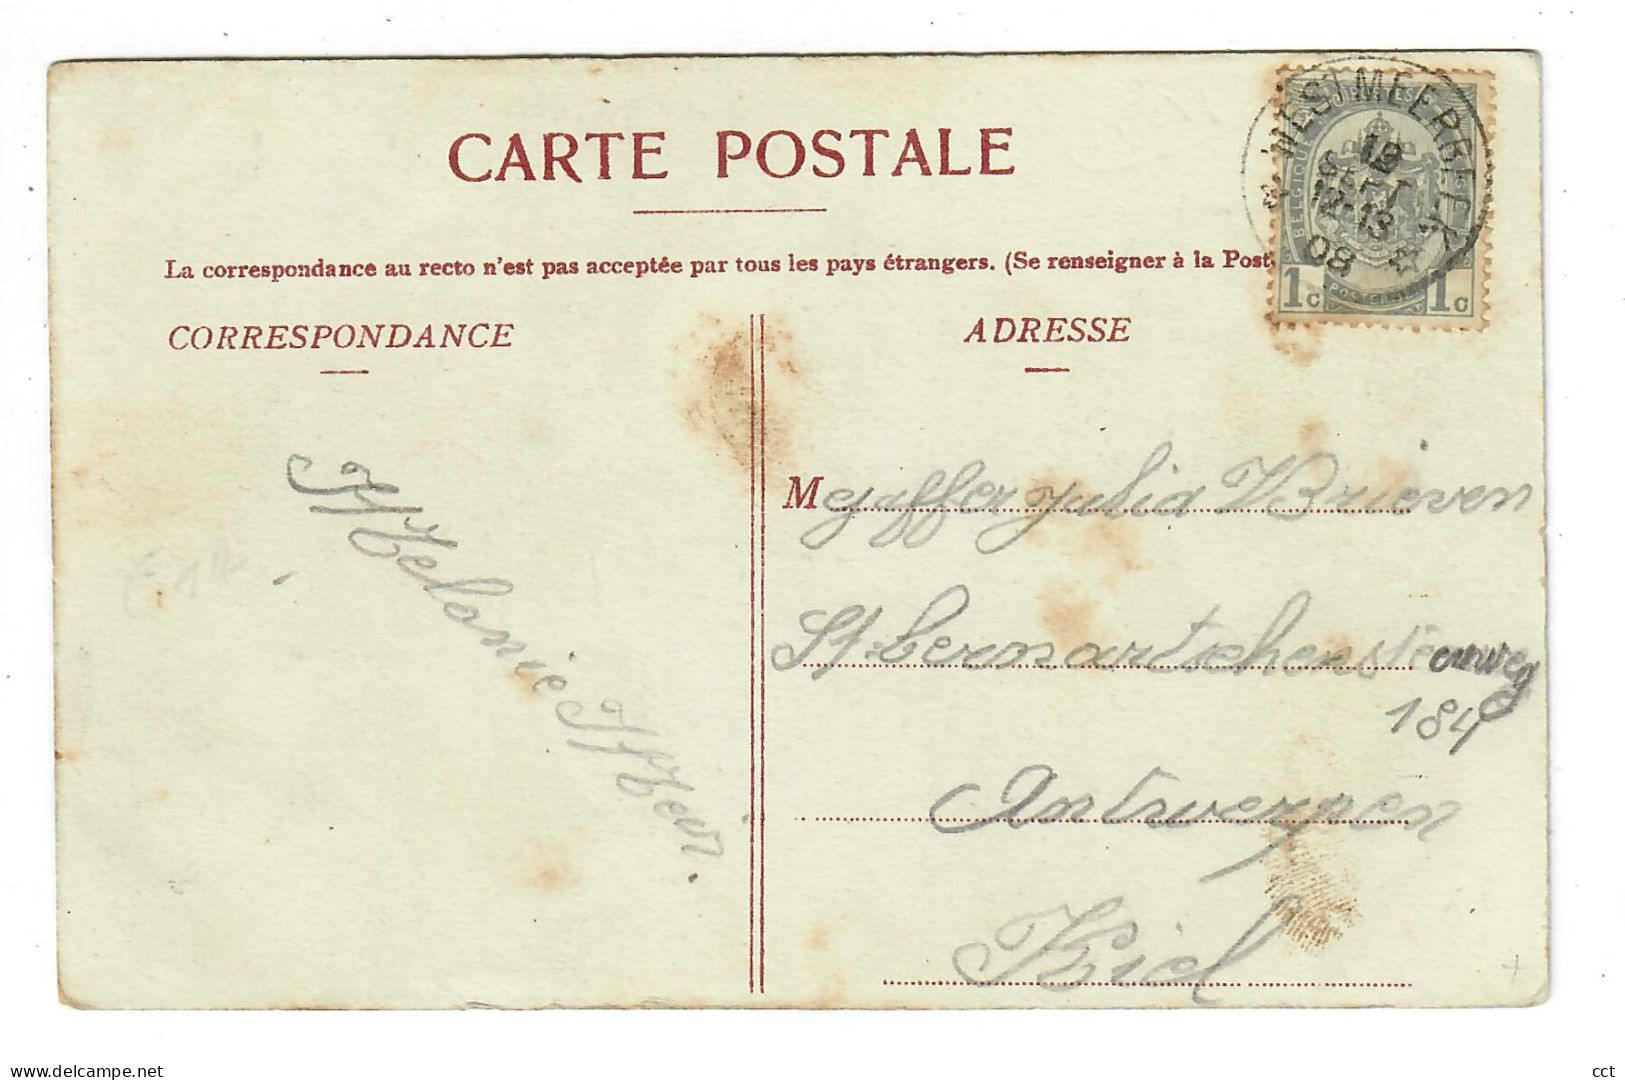 CARTE POSTALE
La correspondance au recto n'est pas acceptée par tous les pays étrangers. (Se renseigner à la Post
CORRESPONDANCE
ADRESSE
WESTMEERBEEK
19
SEPT
12-13
08
BELGIQUE
POSTES
1c 1c
Mejuffer Julia
St bernartschensteenweg
184
Antwerpen
Kiel
Melanie
www.delcampe.net
cct